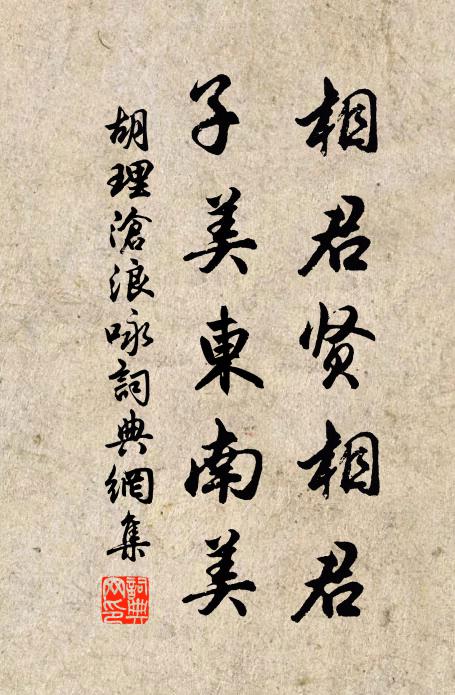 相君贤相君
子美東南美
胡理滄浪咏詞典網集
詞典
网印